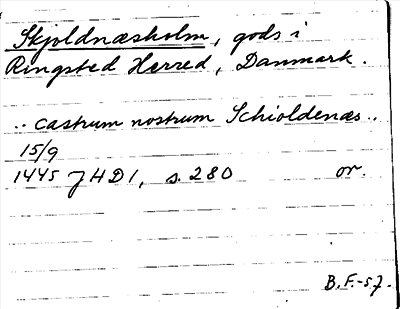 Skjoldnæsholm, gods i
Ringsted Herred, Danmark.
.. castrum nostrum Schioldenæs ..
15/9
1445 7HD1, s. 280 or.
B.F.-57.